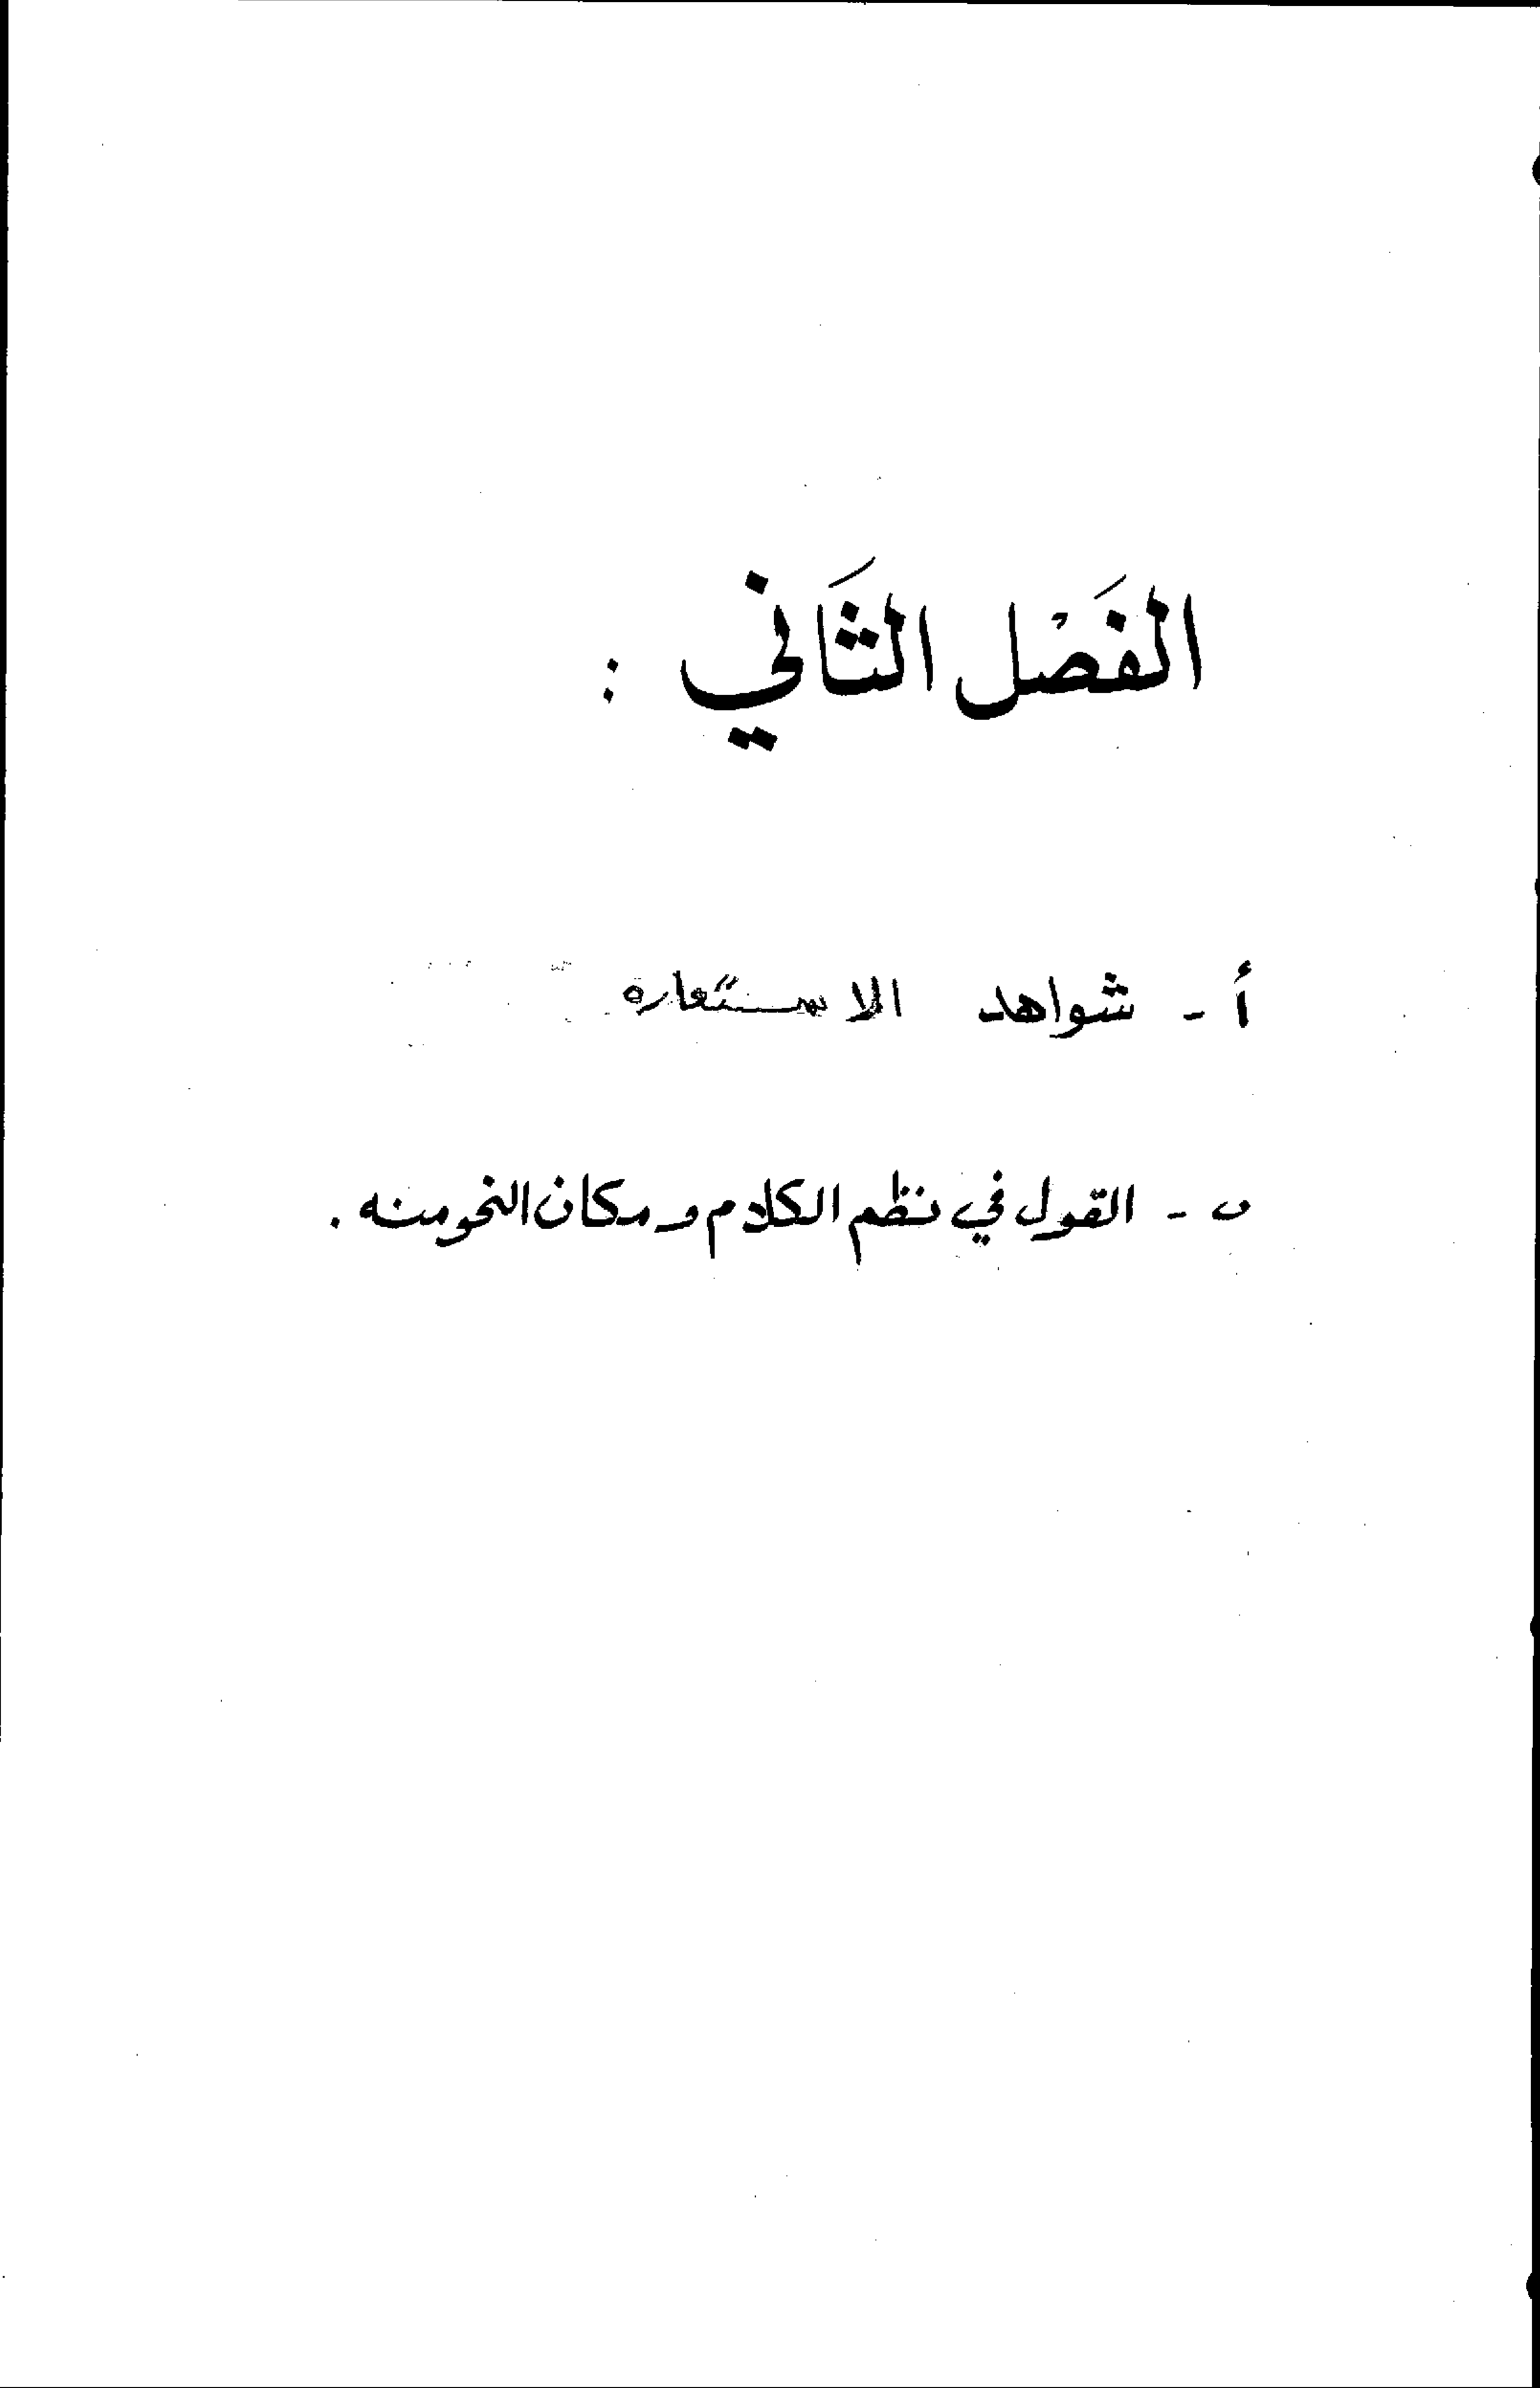 الفَصْل الثَاني :
أ - شواهد الاستعاره
ب - القول في نظم الكلام و مكان النحو منه .